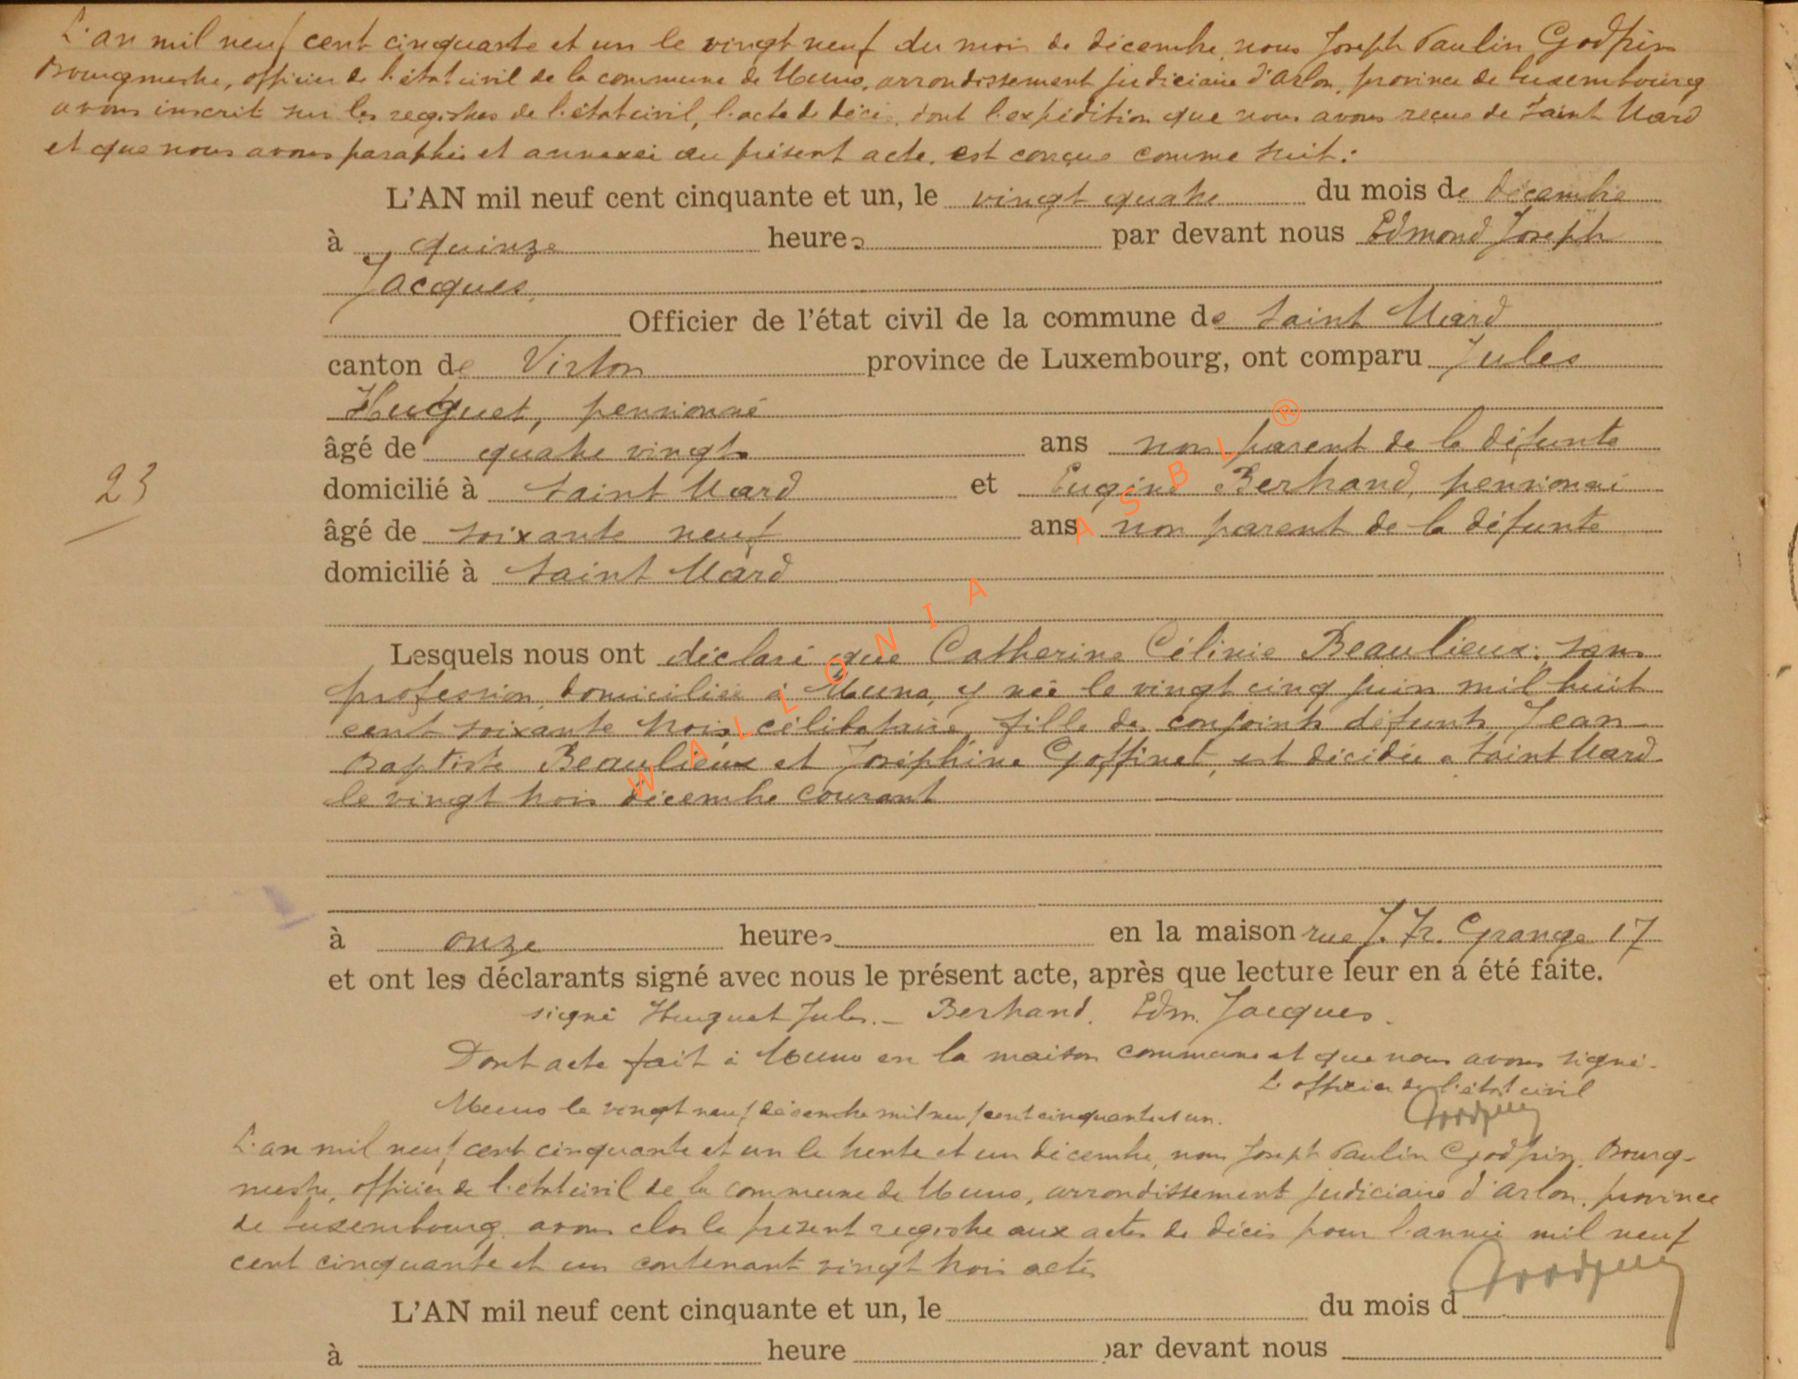 L'an mil neuf cent cinquante et un le vingt neuf du mois de décembre, nous Joseph Paulin Godfrin
Bourgmestre, officier de l'état civil de la commune de Muno, arrondissement judiciaire d'Arlon, province de Luxembourg
avons inscrit sur les registres de l'état civil, l'acte de décès, dont l'expédition que nous avons reçue de Saint Mard
et que nous avons paraphée et annexée au présent acte, est conçue comme suit :
L'AN mil neuf cent cinquante et un, le vingt quatre du mois de décembre
à quinze heures par devant nous Edmond Joseph
Jacques,
Officier de l'état civil de la commune de Saint Mard
canton de Virton province de Luxembourg, ont comparu Jules
Huguet, pensionné
âgé de quatre vingts ans non parent de la défunte
23
domicilié à Saint Mard et Eugène Bertrand, pensionné
âgé de soixante neuf ans non parent de la défunte
domicilié à Saint Mard
Lesquels nous ont déclaré que Catherine Célinie Beaulieux, sans
profession, domiciliée à Muno, y née le vingt cinq juin mil huit
cent soixante trois, célibataire, fille des conjoints défunts Jean-
Baptiste Beaulieux et Joséphine Goffinet, est décédée à Saint Mard
le vingt trois décembre courant
WALLONIA ASBL ®
à onze heures en la maison rue J. Fr. Grange 17
et ont les déclarants signé avec nous le présent acte, après que lecture leur en a été faite.
signé Huguet Jules. — Bertrand. Edm. Jacques.
Dont acte fait à Muno en la maison commune et que nous avons signé.
L'officier de l'état civil
Muno le vingt neuf décembre mil neuf cent cinquante et un.
L'an mil neuf cent cinquante et un le trente et un décembre, nous Joseph Paulin Godfrin, Bourg-
mestre, officier de l'état civil de la commune de Muno, arrondissement judiciaire d'Arlon, province
de Luxembourg, avons clos le présent registre aux actes de décès pour l'année mil neuf
cent cinquante et un contenant vingt trois actes
L'AN mil neuf cent cinquante et un, le du mois d
à heure par devant nous